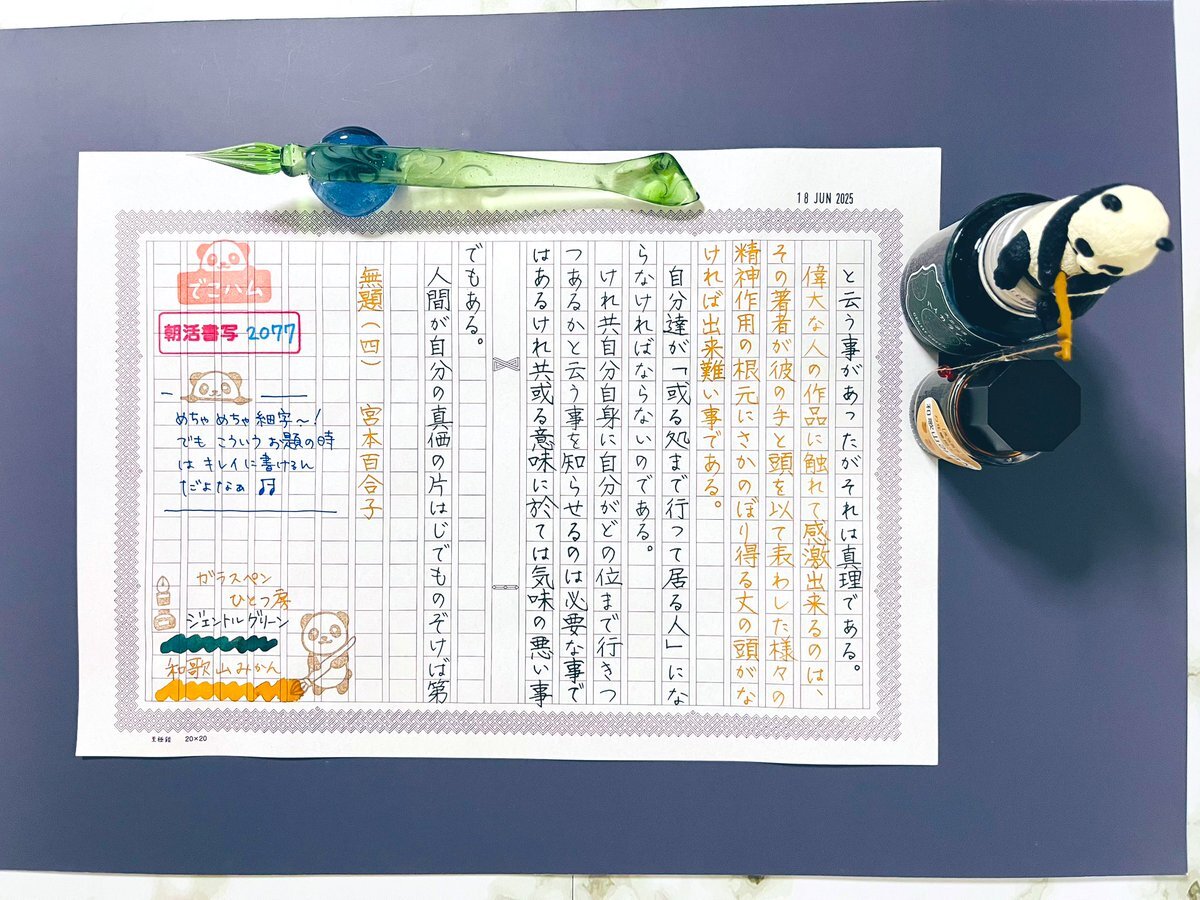 18 JUN 2025
と云う事があったがそれは真理である。
偉大な人の作品に触れて感激出来るのは、
その著者が彼の手と頭を以て表わした様々の
精神作用の根元にさかのぼり得る丈の頭がな
ければ出来難い事である。
自分達が「或る処まで行って居る人」にな
らなければならないのである。
けれ共自分自身に自分がどの位まで行きつ
つあるかと云う事を知らせるのは必要な事で
はあるけれ共或る意味に於ては気味の悪い事
でもある。
人間が自分の真価の片はじでものぞけば第
無題(四) 宮本百合子
でこハム
朝活書写 2077
めちゃめちゃ細字〜!
でも こういうお題の時
は キレイに書けるん
だよなぁ♫
ガラスペン
ひとつ房
ジェントルグリーン
和歌山みかん
20×20